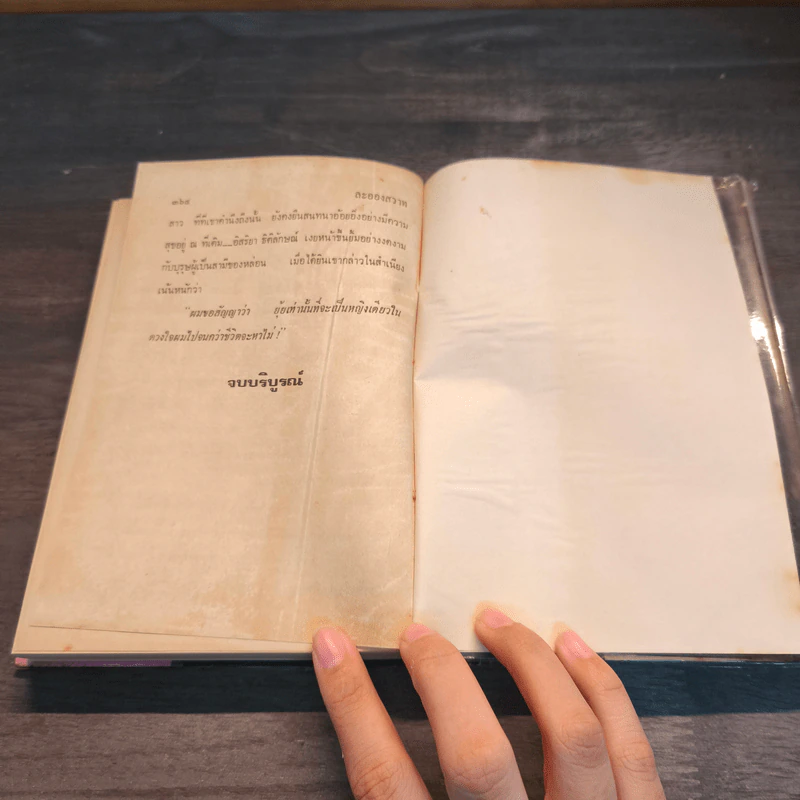 ๓๖๕ ละอองสวาท
ดาว ที่ที่เขาคำนึงถึงนั้น ยังคงยืนสนทนาอ้อยอิ่งอย่างมีความ
สุขอยู่ ณ ที่เดิม__อิสริยา ธิติลักษณ์ เงยหน้าขึ้นยิ้มอย่างงดงาม
กับบุรุษผู้เป็นสามีของหล่อน เมื่อได้ยินเขากล่าวในสำเนียง
เน้นหนักว่า
"ผมขอสัญญาว่า ยุ้ยเท่านั้นที่จะเป็นหญิงเดียวใน
ดวงใจผมไปจนกว่าชีวิตจะหาไม่ !"
จบบริบูรณ์